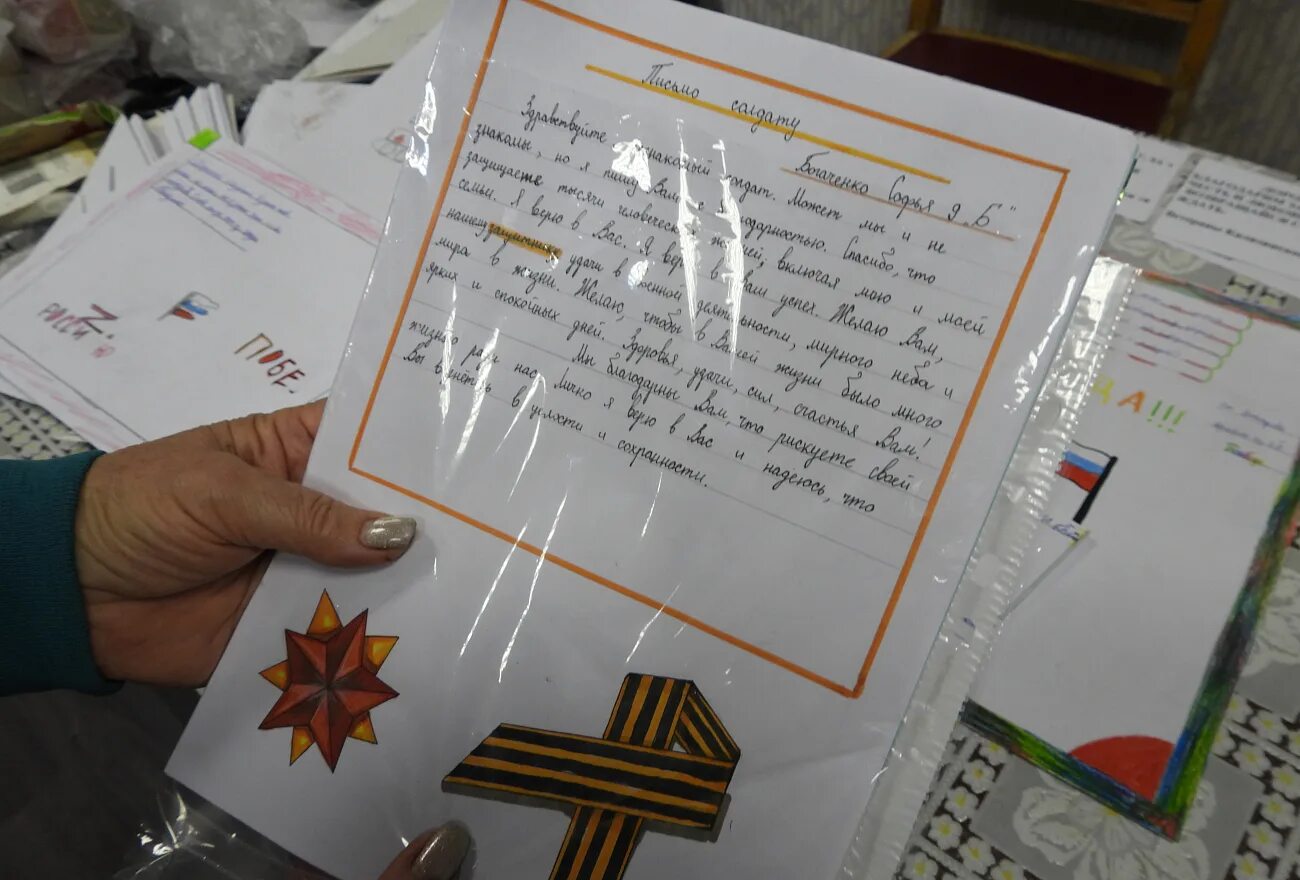 Письмо солдату
Богаченко Софья 9 „Б"
Здравствуйте, незнакомый солдат. Может мы и не
знакомы, но я пишу Вам с благодарностью. Спасибо, что
защищаете тысячи человеческих жизней, включая мою и моей
семьи. Я верю в Вас. Я верю в Ваш успех. Желаю Вам,
нашему защитнику, удачи в военной деятельности, мирного неба и
мира в жизни. Желаю, чтобы в Вашей жизни было много
ярких и спокойных дней. Здоровья, удачи, сил, счастья Вам!
Мы благодарны Вам, что рискуете своей
жизнью ради нас. Лично я верю в Вас и надеюсь, что
Вы вернётесь в целости и сохранности.
РОССИ Ю
Z
ПОБЕ
ДА!!!